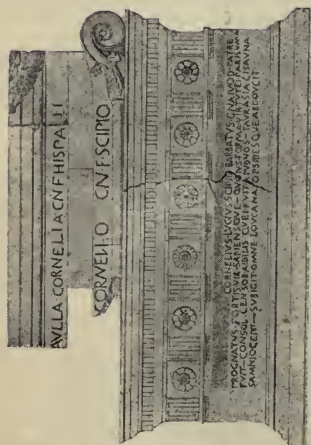 AVLLA CORNELIA CN F HISPALLI
CORNELIO CN F SCIPIO
CORNELIVS·LVCIVS·SCIPIO·BARBATVS·GNAIVOD·PATRE
PROGNATVS·FORTIS·VIR·SAPIENSQVE—QVOIVS·FORMA·VIRTVTEI·PARISVMA
FVIT—CONSOL CENSOR·AIDILIS·QVEI·FVIT·APVD·VOS—TAVRASIA·CISAVNA
SAMNIO·CEPIT—SVBIGIT·OMNE·LOVCANA·OPSIDESQVE·ABDOVCIT